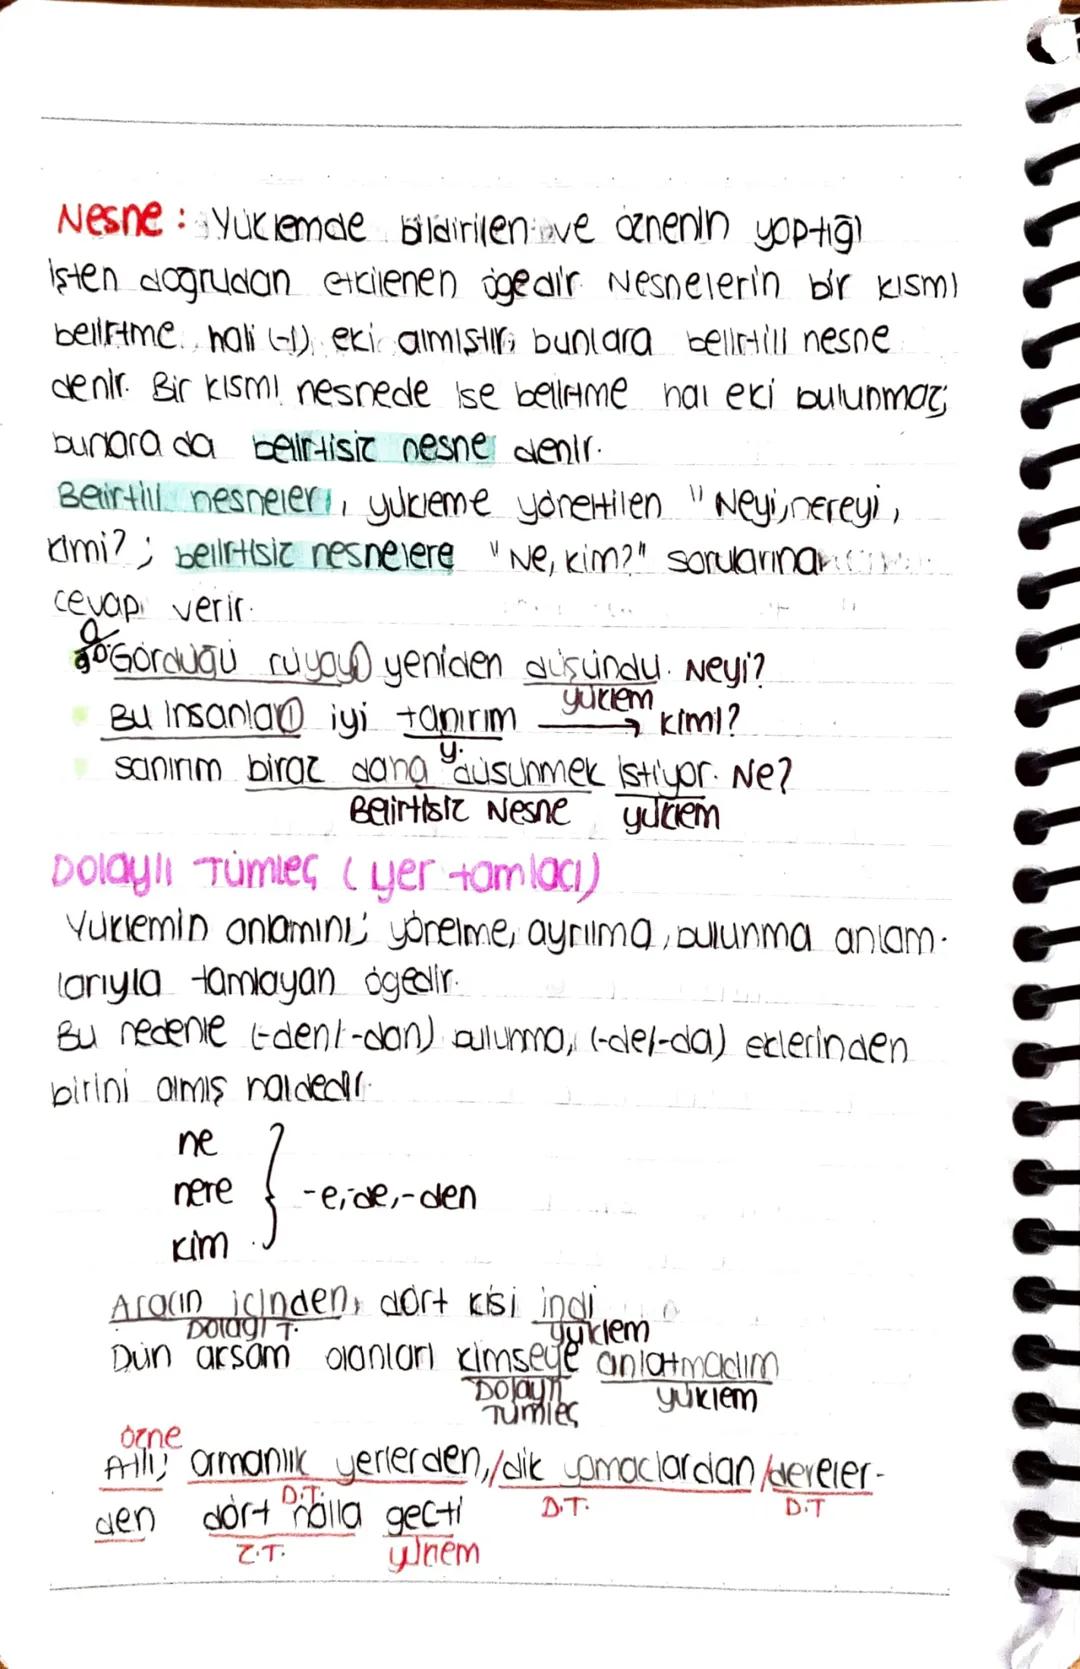 Nesne: Yüklemde bildirilen ve öznenin yaptığı
işten doğrudan etkilenen ögedir. Nesnelerin bir kısmı
belirtme hali (-ı) eki almıştır; bunlara belirtili nesne
denir. Bir kısmı nesnede ise belirtme hal eki bulunmaz;
bunlara da belirtisiz nesne denir.
Belirtili nesneler, yükleme yöneltilen "Neyi, nereyi,
kimi? ; belirtisiz nesnelere "Ne, kim?" sorularına
cevap verir.
Gördüğü rüyayı yeniden düşündu. Neyi?
yüklem
Bu insanları iyi tanırım → kimi?
y.
sanırım biraz daha düsünmek istiyor. Ne?
Belirtisiz Nesne yüklem
Dolaylı Tümleç (yer tamlacı)
Yüklemin anlamını; yönelme, ayrılma, bulunma anlam-
larıyla tamlayan ögedir.
Bu nedenle (-den/-dan) bulunma, (-de/-da) eklerinden
birini almış haldedir.
ne
nere } -e,-de,-den
kim
Aracın içinden, dört kisi indi
Dolaylı T. yüklem
Dün aksam olanları kimseye anlatmadım
Dolaylı Tümleç yüklem
özne
Atlı; ormanlık yerlerden,/dik yamaclardan/dereler-
D.T. D.T. D.T
den dört nalla gecti
Z.T. yüklem